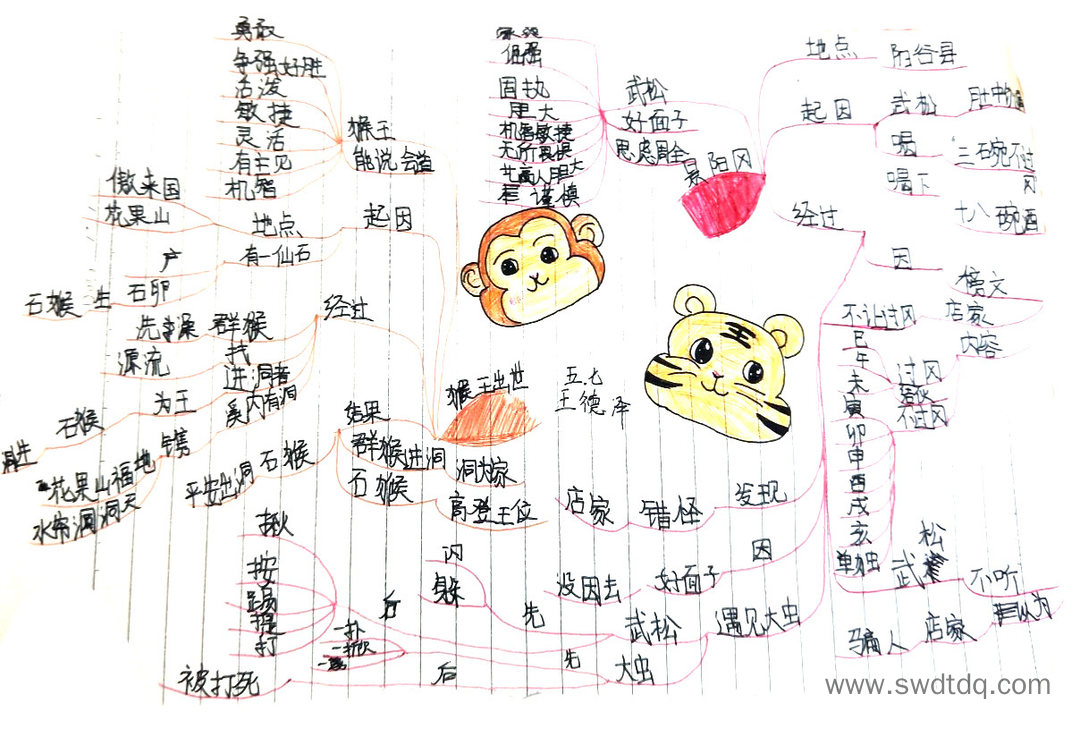 勇敢
争强好胜
活泼
敏捷
灵活
有主见
机智
猴王
能说会道
傲来国
花果山
地点
起因
产
有一仙石
石猴
生
石卵
经过
先
澡
群猴
找
源流
进洞者
为王
石猴
溪内有洞
镌
花果山福地
水帘洞洞天
猴王出世
结果
群猴
进洞
洞为家
平安出洞
石猴
石猴
高登王位
五.七
王德泽
倔强
固执
胆大
机智敏捷
无所畏惧
艺高人胆大
谨慎
武松
好面子
思虑周全
景阳冈
地点
阳谷县
起因
武松
肚中饥
喝
三碗不过冈
喝下
十八碗酒
经过
因
榜文
不让过冈
店家
内容
巳
午
未
过冈
不过冈
寅
卯
申
酉
戌
亥
单独
武松
不听
自以为
店家
骗人
发现
错怪
店家
因
好面子
没回去
遇见大虫
武松
先
闪
躲
后
揪
按
踢
提
打
大虫
先
一扑
一掀
后
被打死
www.swdtdq.com